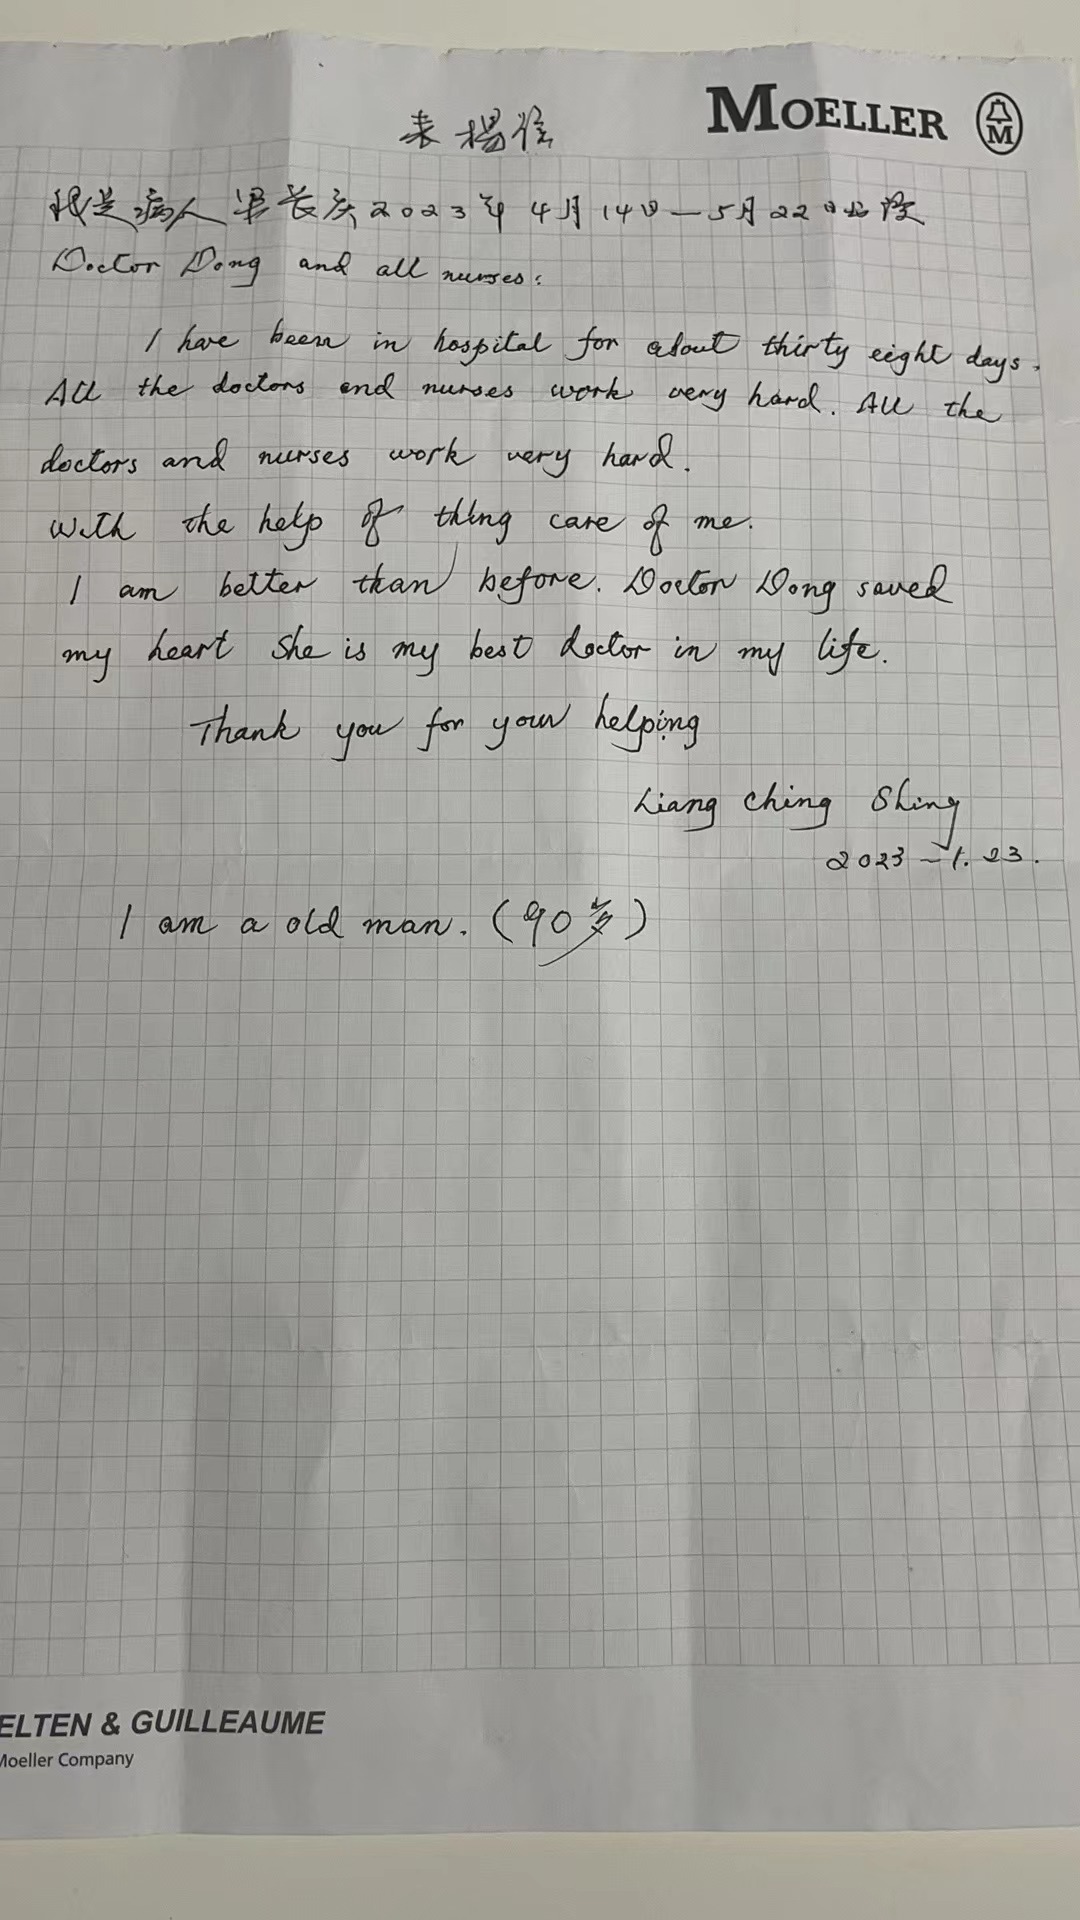 MOELLER
M
表揚信
我是病人梁长庆2023年4月14日—5月22日出院
Doctor Dong and all nurses:
I have been in hospital for about thirty eight days.
All the doctors and nurses work very hard. All the
doctors and nurses work very hard.
With the help of thing care of me.
I am better than before. Doctor Dong saved
my heart She is my best doctor in my life.
Thank you for your helping
Liang Ching Shing
2023-1.23.
I am a old man. (90岁)
ELTEN & GUILLEAUME
Moeller Company